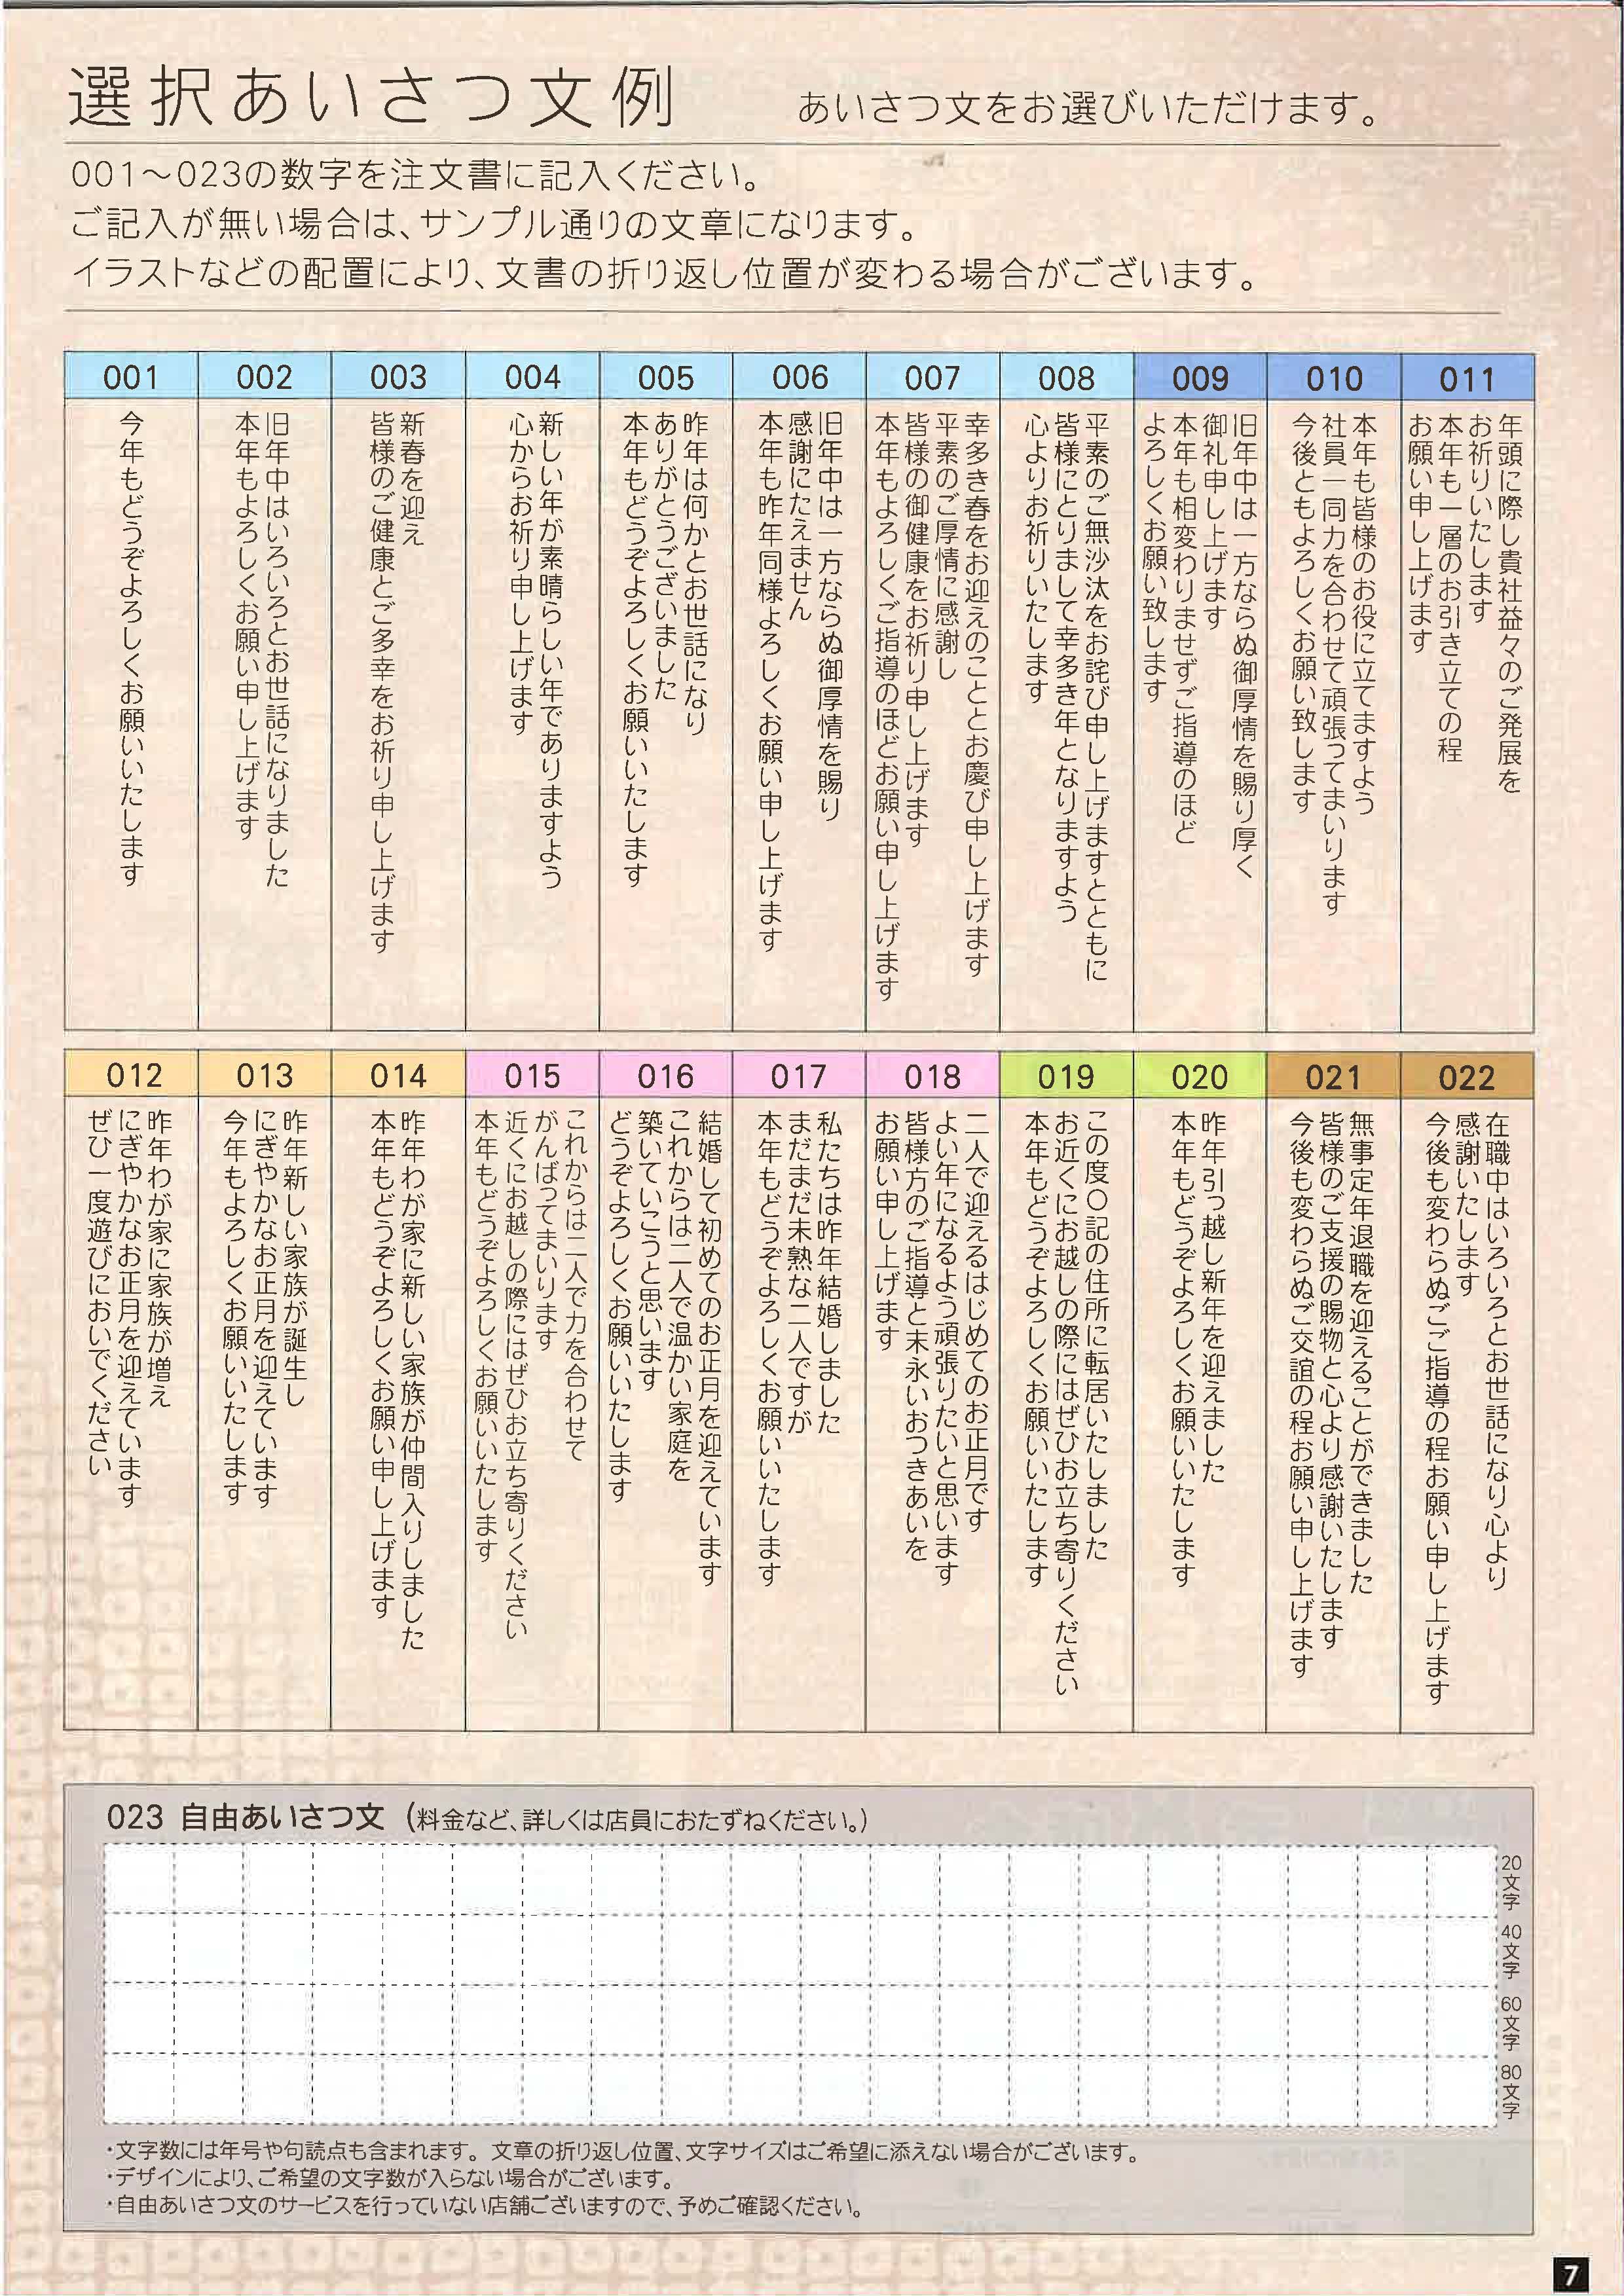 選択あいさつ文例
あいさつ文をお選びいただけます。
001～023の数字を注文書に記入ください。
ご記入が無い場合は、サンプル通りの文章になります。
イラストなどの配置により、文書の折り返し位置が変わる場合がございます。
001
今年もどうぞよろしくお願いいたします
002
旧年中はいろいろとお世話になりました
本年もよろしくお願い申し上げます
003
新春を迎え
皆様のご健康とご多幸をお祈り申し上げます
004
新しい年が素晴らしい年でありますよう
心からお祈り申し上げます
005
昨年は何かとお世話になり
ありがとうございました
本年もどうぞよろしくお願いいたします
006
旧年中は一方ならぬ御厚情を賜り
感謝にたえません
本年も昨年同様よろしくお願い申し上げます
007
幸多き春をお迎えのこととお慶び申し上げます
平素のご厚情に感謝し
皆様の御健康をお祈り申し上げます
本年もよろしくご指導のほどお願い申し上げます
008
平素のご無沙汰をお詫び申し上げますとともに
皆様にとりまして幸多き年となりますよう
心よりお祈りいたします
009
旧年中は一方ならぬ御厚情を賜り厚く
御礼申し上げます
本年も相変わりませずご指導のほど
よろしくお願い致します
010
本年も皆様のお役に立てますよう
社員一同力を合わせて頑張ってまいります
今後ともよろしくお願い致します
011
年頭に際し貴社益々のご発展を
お祈りいたします
本年も一層のお引き立ての程
お願い申し上げます
012
昨年わが家に家族が増え
にぎやかなお正月を迎えています
ぜひ一度遊びにおいでください
013
昨年新しい家族が誕生し
にぎやかなお正月を迎えています
今年もよろしくお願いいたします
014
昨年わが家に新しい家族が仲間入りしました
本年もどうぞよろしくお願い申し上げます
015
これからは二人で力を合わせて
がんばってまいります
近くにお越しの際にはぜひお立ち寄りください
本年もどうぞよろしくお願いいたします
016
結婚して初めてのお正月を迎えています
これからは二人で温かい家庭を
築いていこうと思います
どうぞよろしくお願いいたします
017
私たちは昨年結婚しました
まだまだ未熟な二人ですが
本年もどうぞよろしくお願いいたします
018
二人で迎えるはじめてのお正月です
よい年になるよう頑張りたいと思います
皆様方のご指導と末永いおつきあいを
お願い申し上げます
019
この度〇記の住所に転居いたしました
お近くにお越しの際にはぜひお立ち寄りください
本年もどうぞよろしくお願いいたします
020
昨年引っ越し新年を迎えました
本年もどうぞよろしくお願いいたします
021
無事定年退職を迎えることができました
皆様のご支援の賜物と心より感謝いたします
今後も変わらぬご交誼の程お願い申し上げます
022
在職中はいろいろとお世話になり心より
感謝いたします
今後も変わらぬごご指導の程お願い申し上げます
023 自由あいさつ文（料金など、詳しくは店員におたずねください。）
20文字
40文字
60文字
80文字
・文字数には年号や句読点も含まれます。文章の折り返し位置、文字サイズはご希望に添えない場合がございます。
・デザインにより、ご希望の文字数が入らない場合がございます。
・自由あいさつ文のサービスを行っていない店舗ございますので、予めご確認ください。
7